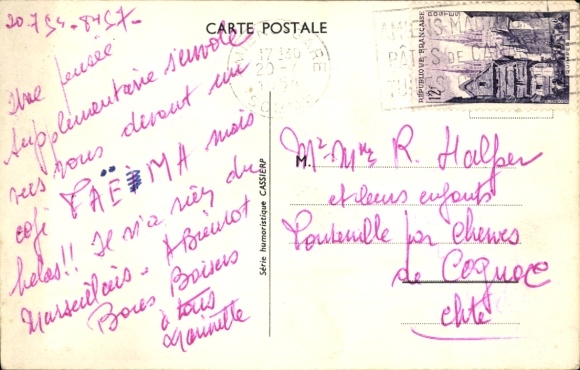 20.7.54 - 8457-
CARTE POSTALE
Une pensée
supplémentaire s'envole
vers vous devant un
café FAËMA mais
helas!! Il n'a rien du
Marseillais. A Bientot
Bons Baisers
à tous
Marinette
Série humoristique CASSIERP
RÉPUBLIQUE FRANÇAISE
POSTES
12F
17 H30
20-7
M. Mr Mme R. Halper
et leurs enfants
Ponteuille par Cherves
de Cognac
chte